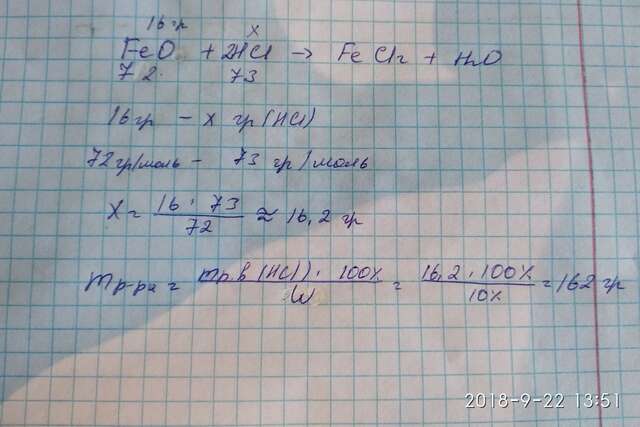 16гр x
FeO + 2HCl → FeCl₂ + H₂O
72 73
16гр - x гр (HCl)
72гр/моль - 73 гр/моль
X = 16 · 73 / 72 ≈ 16,2 гр
mр-ра = mр.в (HCl) · 100% / W = 16,2 · 100% / 10% = 162 гр
2018-9-22 13:51